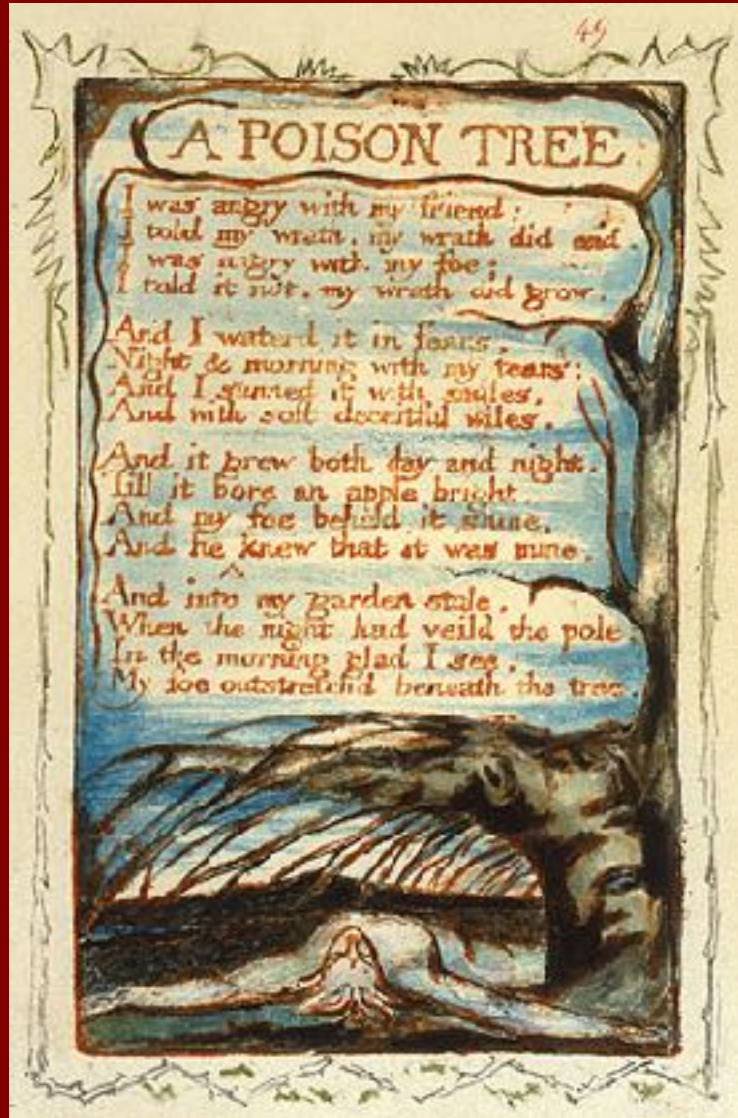 49
A POISON TREE
I was angry with my friend:
I told my wrath, my wrath did end.
I was angry with my foe:
I told it not, my wrath did grow.
And I waterd it in fears,
Night & morning with my tears:
And I sunned it with smiles,
And with soft deceitful wiles.
And it grew both day and night.
Till it bore an apple bright.
And my foe beheld it shine,
And he knew that it was mine.
And into my garden stole,
When the night had veild the pole;
In the morning glad I see,
My foe outstretchd beneath the tree.